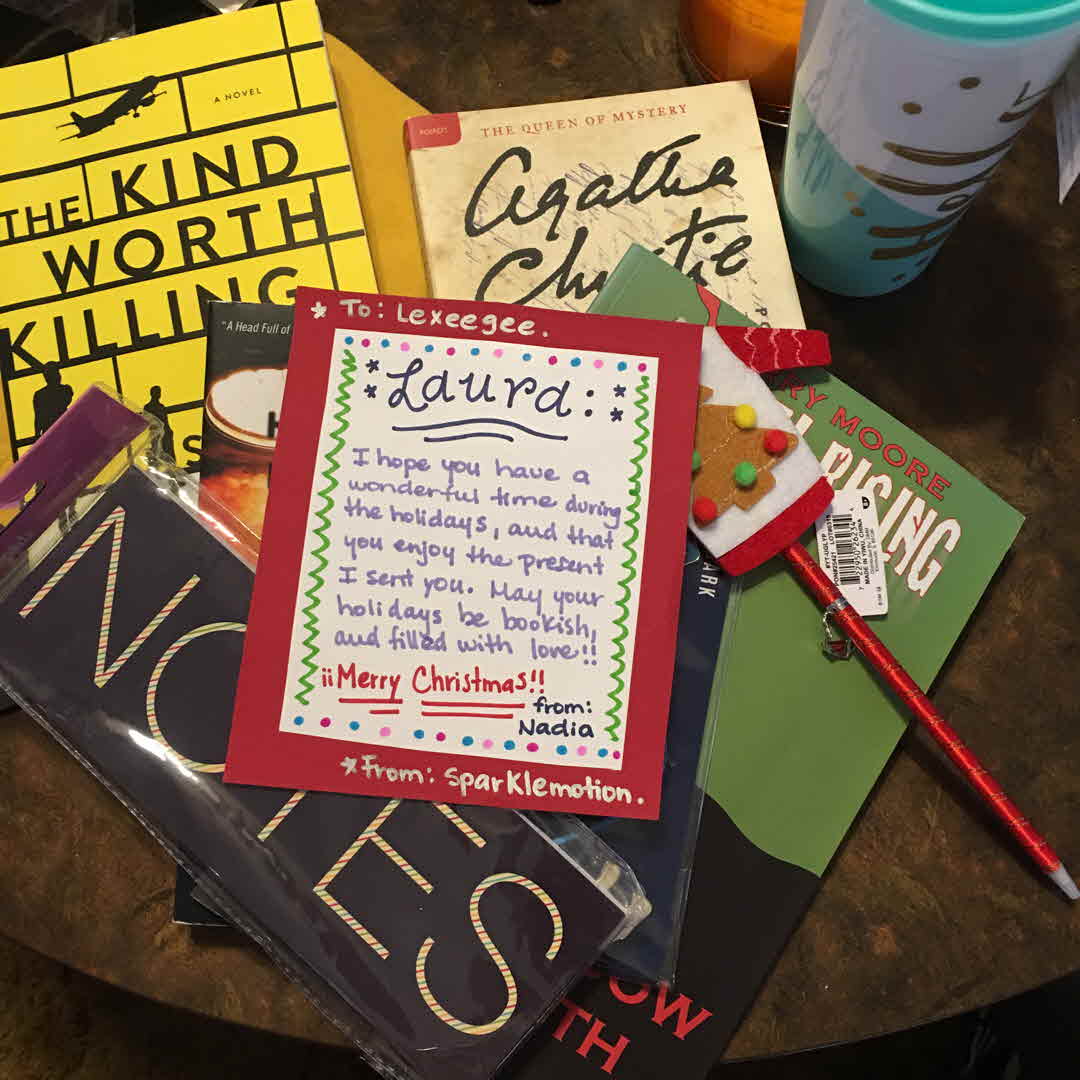 A NOVEL
THE KIND
WORTH
KILLING
POIROT
THE QUEEN OF MYSTERY
Agatha
Christie
"A Head Full of
To: Lexeegee.
Laura:
I hope you have a
wonderful time during
the holidays, and that
you enjoy the present
I sent you. May your
holidays be bookish,
and filled with love!!
¡¡Merry Christmas!!
from:
Nadia
*From: sparklemotion.
RY MOORE
RISING
ARK
NOTES
OW
TH
MADE IN YIWU, CHINA